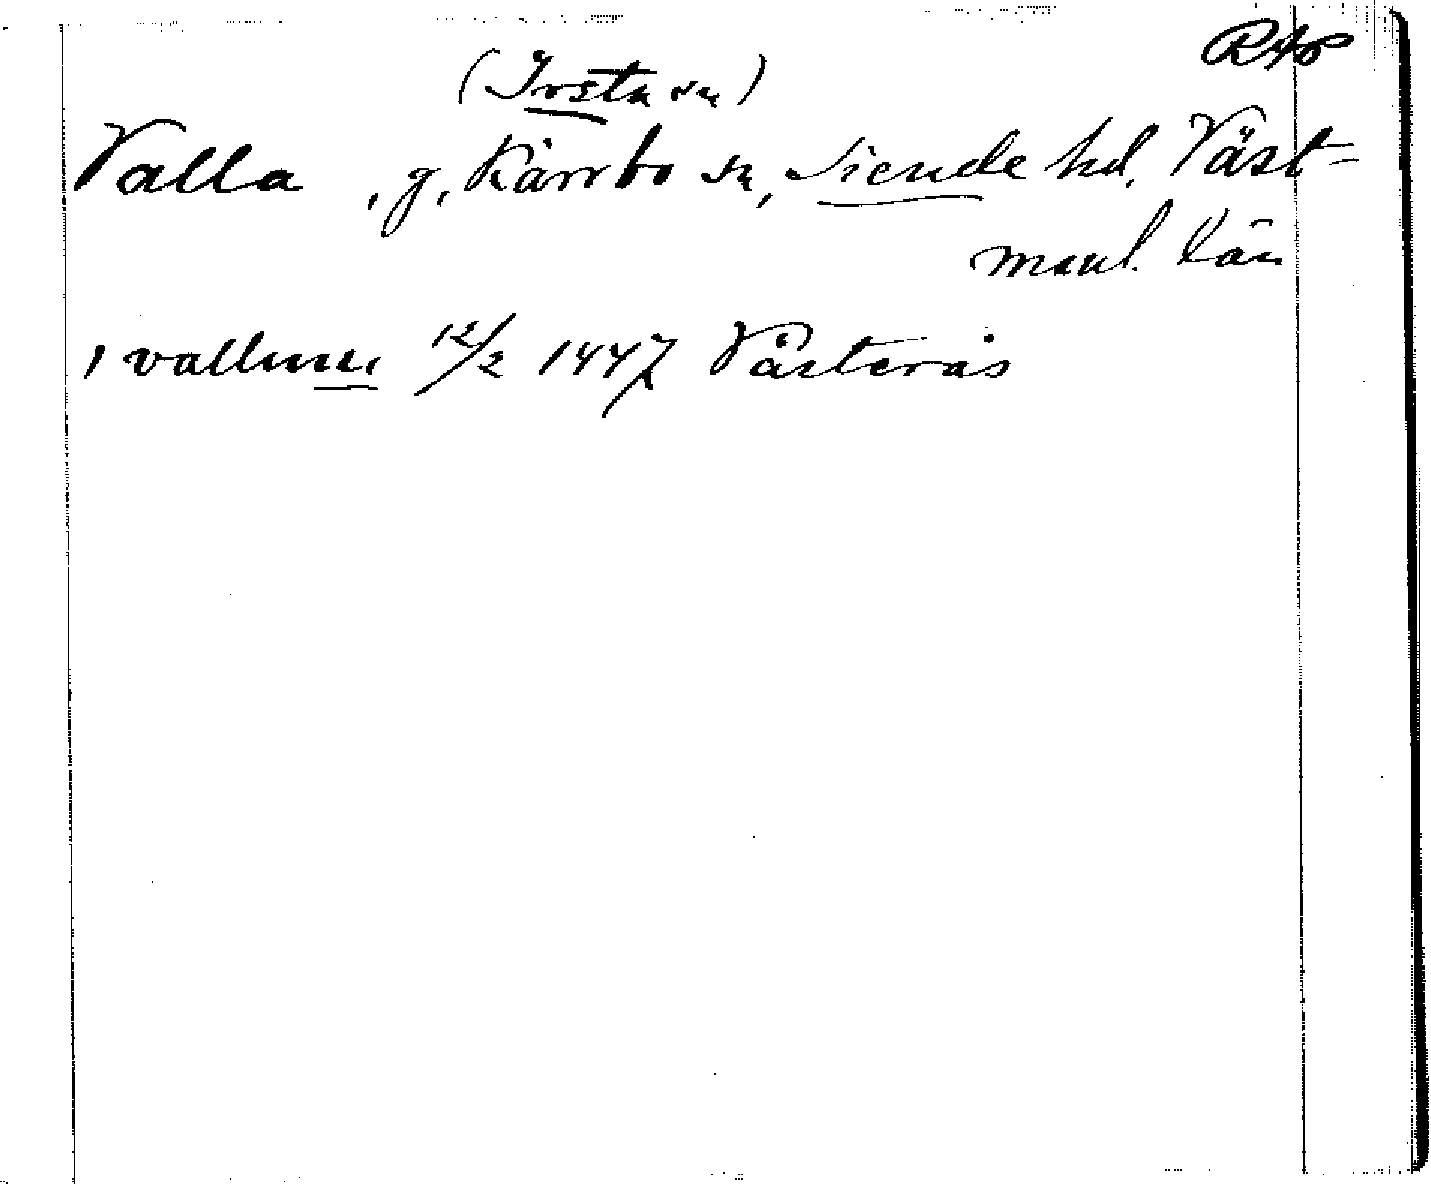 RAp
(Irsta sn)
Valla , g, Kärrbo sn, Siende hd, Väst-
manl. län
i vallum 12/2 1447 Västerås